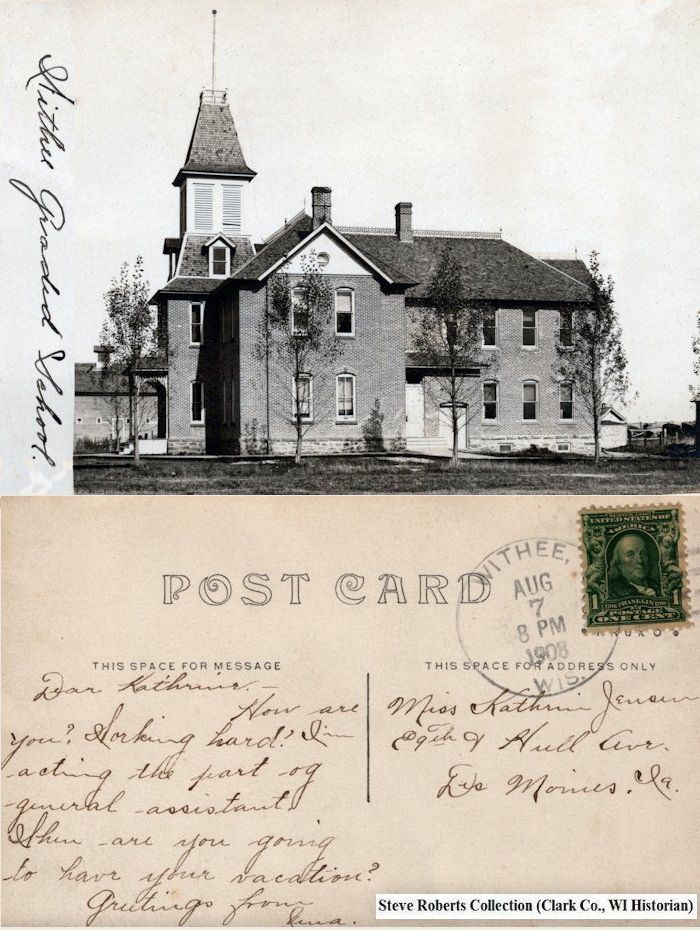 Withee Graded School.
POST CARD
WITHEE,
AUG
7
8 PM
1908
WIS.
SERIES 1902
UNITED STATES OF
AMERICA
1706 FRANKLIN 1790
1 POSTAGE
ONE CENT
THIS SPACE FOR MESSAGE
THIS SPACE FOR ADDRESS ONLY
Dear Kathrine. –
How are
you? Working hard? I'm
acting the part of
general assistant.
When are you going
to have your vacation?
Greetings from
Miss Kathrin Jensen
E 9th & Hull Ave.
Des Moines, Ia.
Steve Roberts Collection (Clark Co., WI Historian)